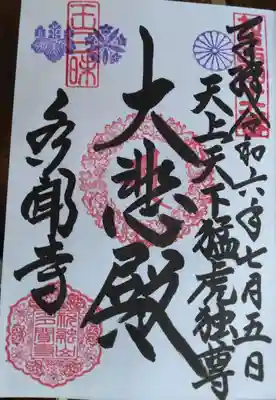 奉拝 令和六年七月五日
天上天下猛虎独尊
大悲殿
多聞寺